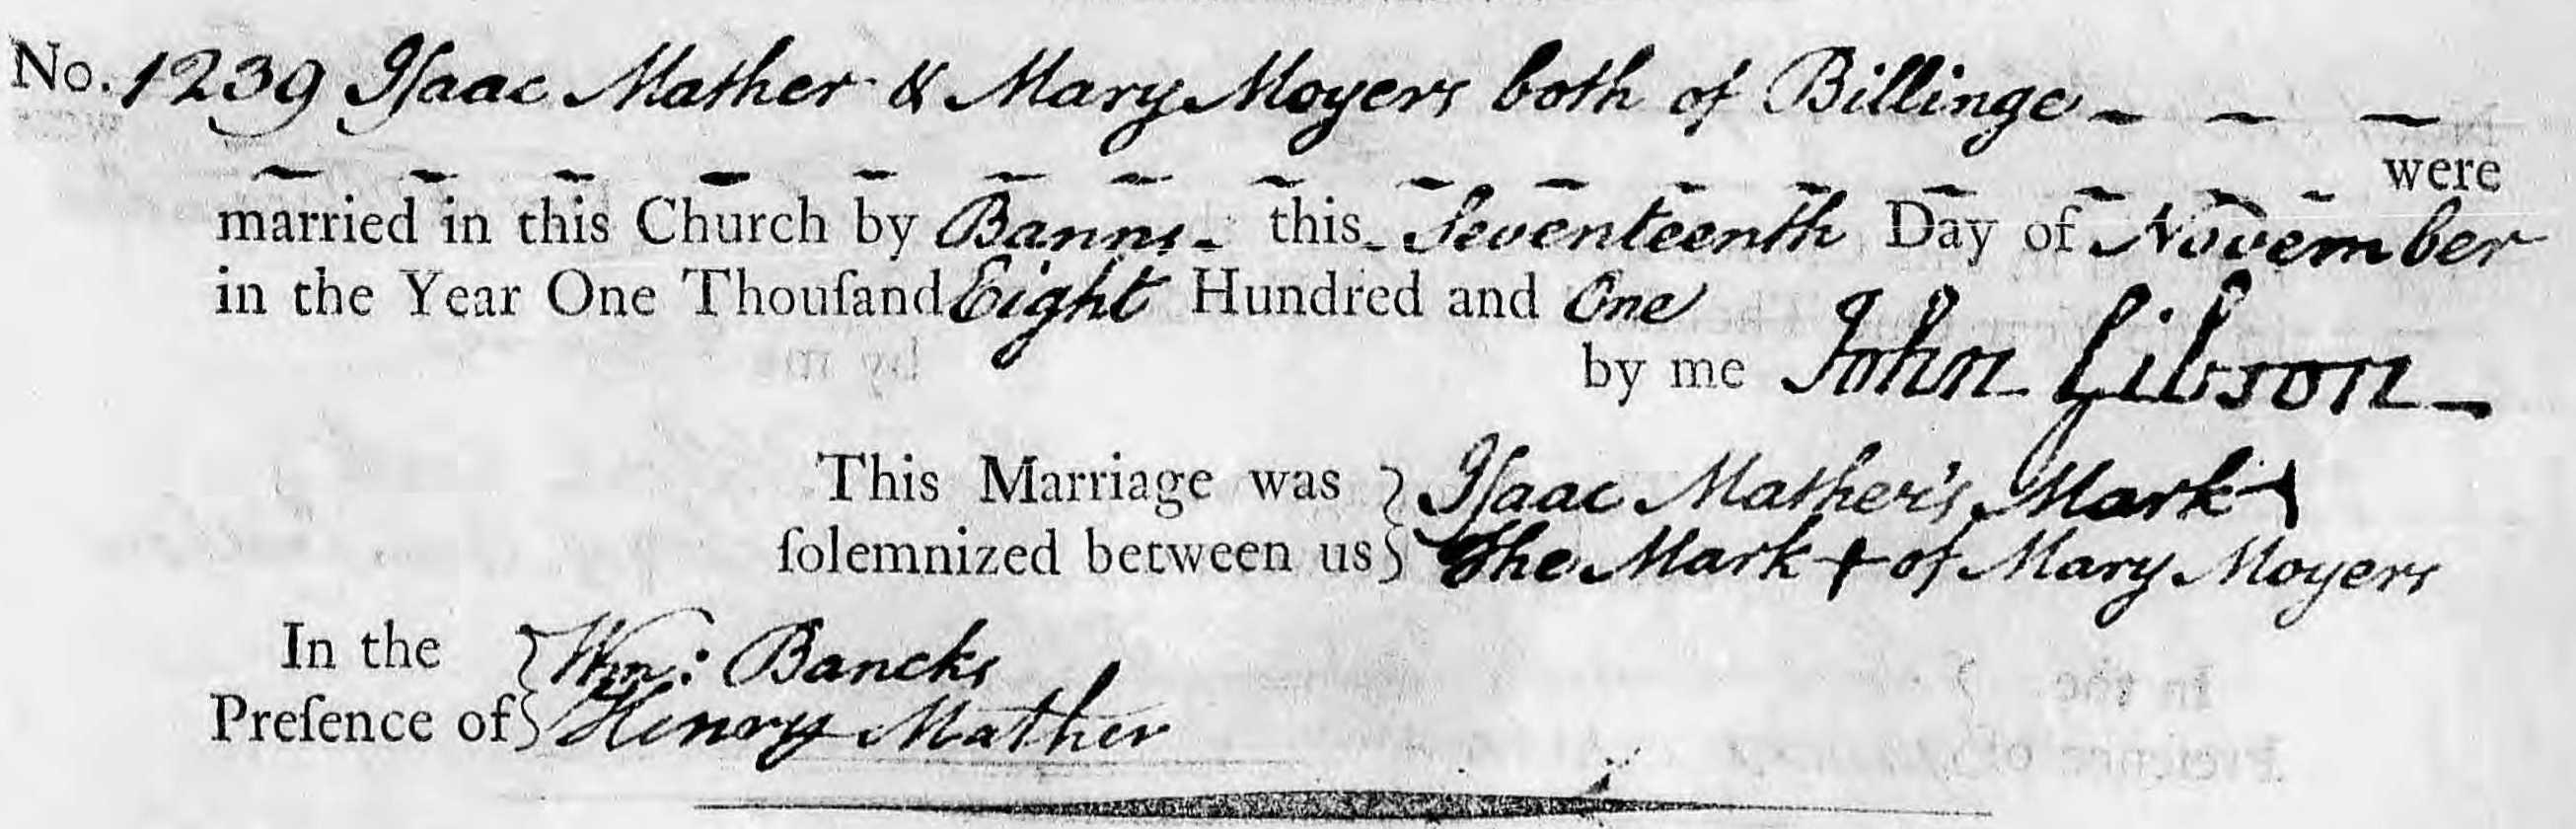 No. 1239 Iſaac Mather & Mary Moyers both of Billinge - - -
were
married in this Church by Banns - this - Seventeenth Day of November
in the Year One Thouſand Eight Hundred and One
by me John Gibson -
This Marriage was } Iſaac Mather's Mark +
ſolemnized between us } The Mark + of Mary Moyers
In the } Wm: Bancks
Preſence of } Henry Mather